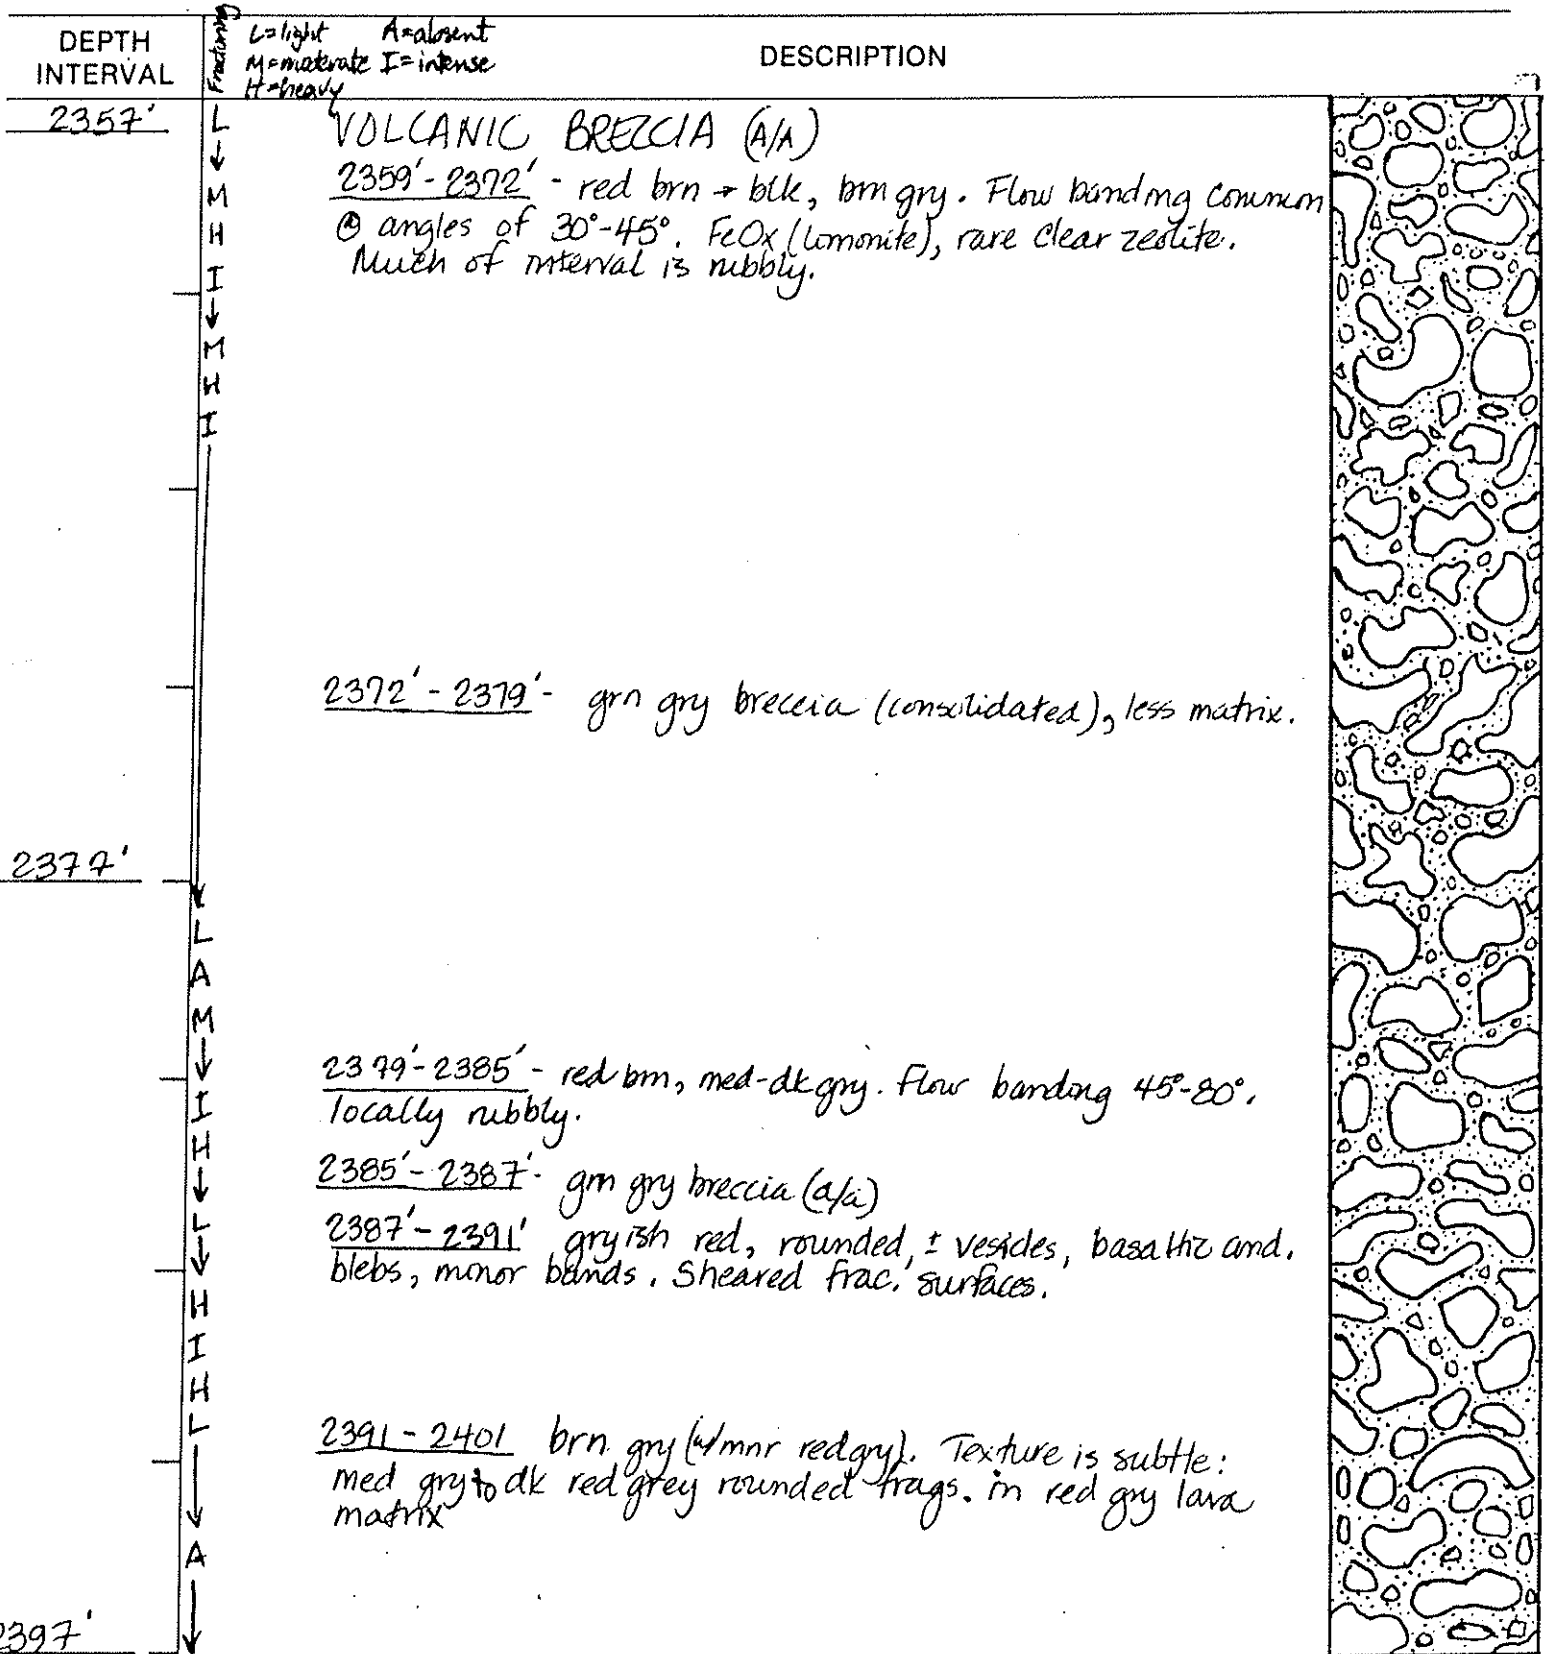 DEPTH INTERVAL
Fracturing
L=light A=absent
M=moderate I=intense
H=heavy
DESCRIPTION
2357'
L
↓
M
H
I
↓
M
H
I
VOLCANIC BRECCIA (A/A)
2359'-2372' - red brn → blk, brn gry. Flow banding common
@ angles of 30°-45°. FeOx (limonite), rare clear zeolite.
Much of interval is rubbly.
2372'-2379'- grn gry breccia (consolidated), less matrix.
2377'
L
A
M
↓
I
H
↓
L
↓
H
I
H
L
↓
A
↓
2379'-2385' - red brn, med-dk gry. Flow banding 45°-80°.
locally rubbly.
2385'-2387'- grn gry breccia (a/a)
2387'-2391' gryish red, rounded, ± vesicles, basaltic and.
blebs, minor bands. Sheared frac. surfaces.
2391-2401 brn gry (w/mnr red gry). Texture is subtle:
med gry to dk red grey rounded frags. in red gry lava
matrix
2397'